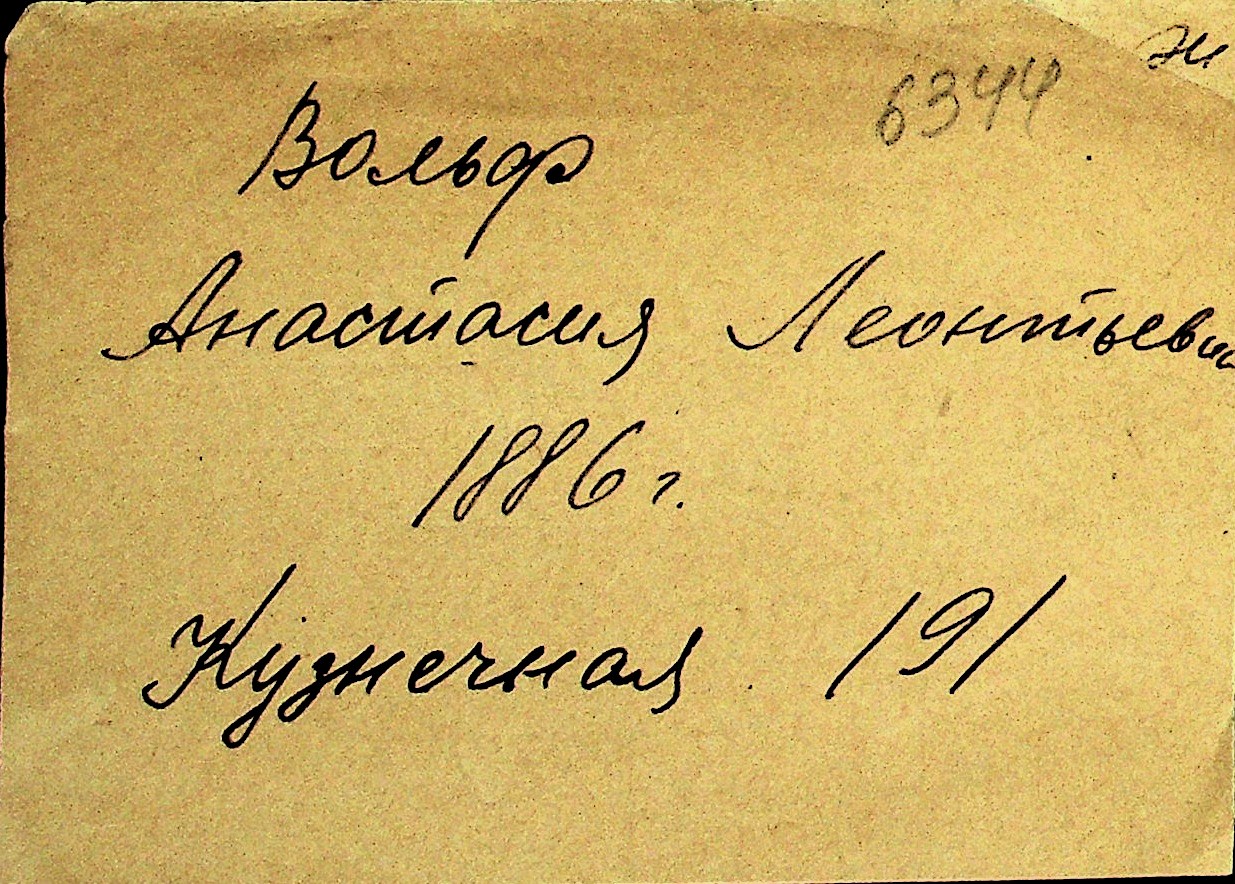 6344
Вольф
Анастасия Леонтьевна
1886 г.
Кузнечная 191